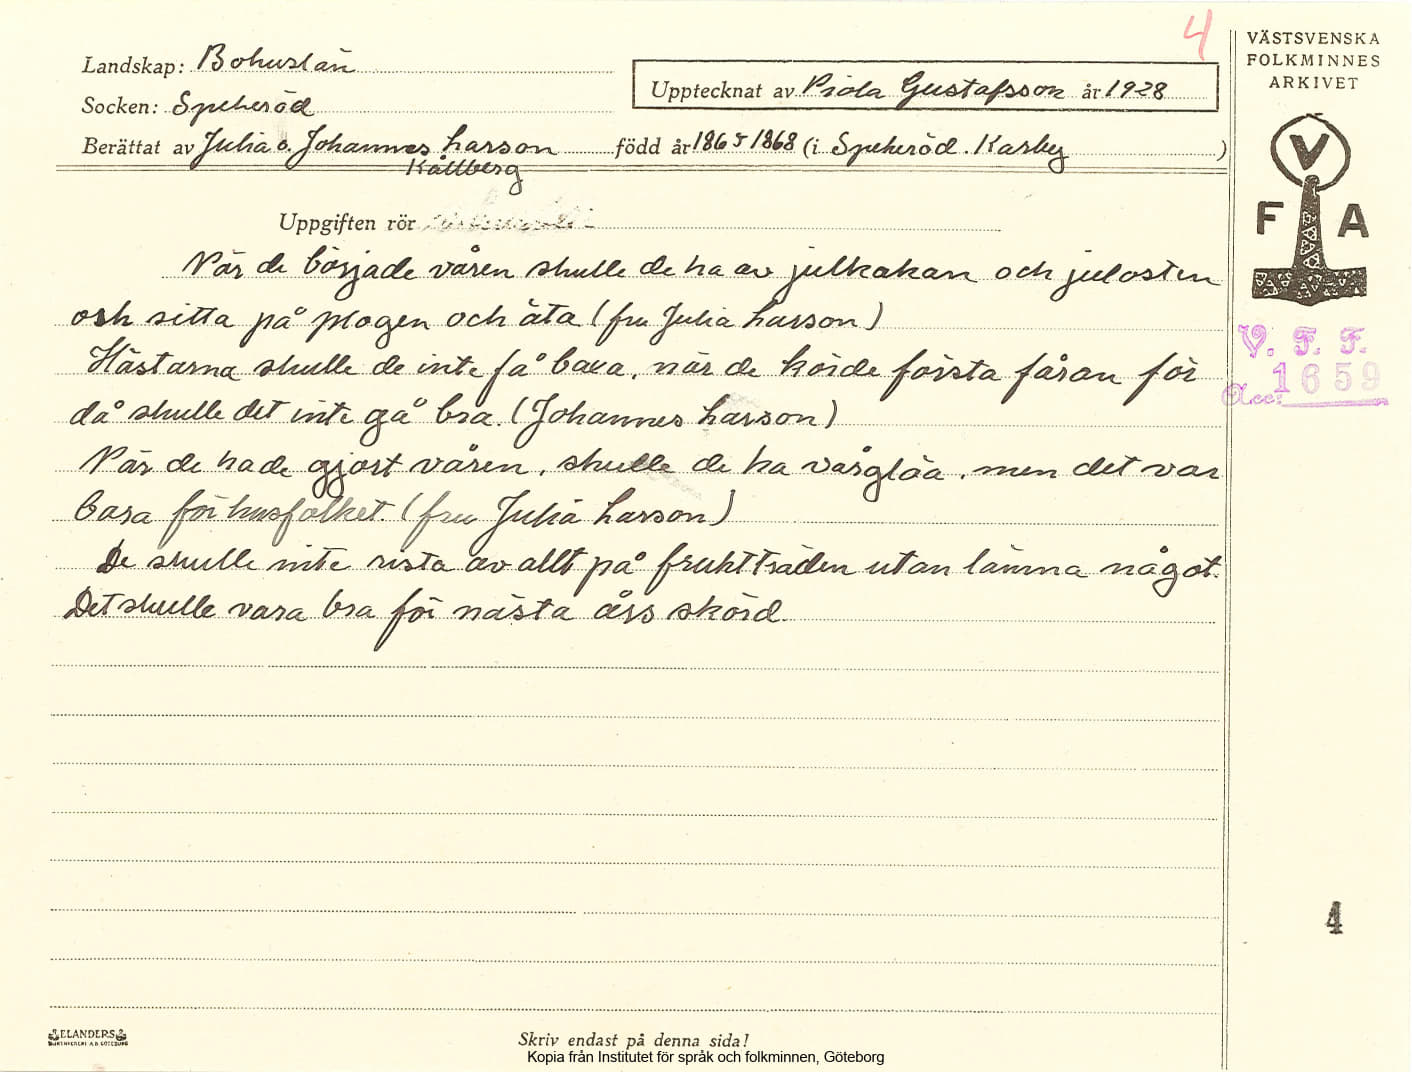 4
VÄSTSVENSKA
FOLKMINNES
ARKIVET
Landskap: Bohuslän
Upptecknat av Viola Gustafsson år 1928
Socken: Spekeröd
Berättat av Julia o. Johannes Larson född år 1865 1868 (i Spekeröd. Karby )
Kållberg
V
F A
Uppgiften rör
När de började våren skulle de ha av julkakan och julosten
och sitta på plogen och äta (fru Julia Larson)
Hästarna skulle de inte få baxa, när de körde första fåran för
då skulle det inte gå bra. (Johannes Larson)
När de hade gjort våren, skulle de ha vårgläa, men det var
bara för husfolket. (fru Julia Larson)
De skulle inte rista av allt på fruktträden utan lämna något.
Det skulle vara bra för nästa års skörd.
V. F. F.
Acc: 1659
4
ELANDERS
BOKTRYCKERI A.B. GÖTEBORG
Skriv endast på denna sida!
Kopia från Institutet för språk och folkminnen, Göteborg